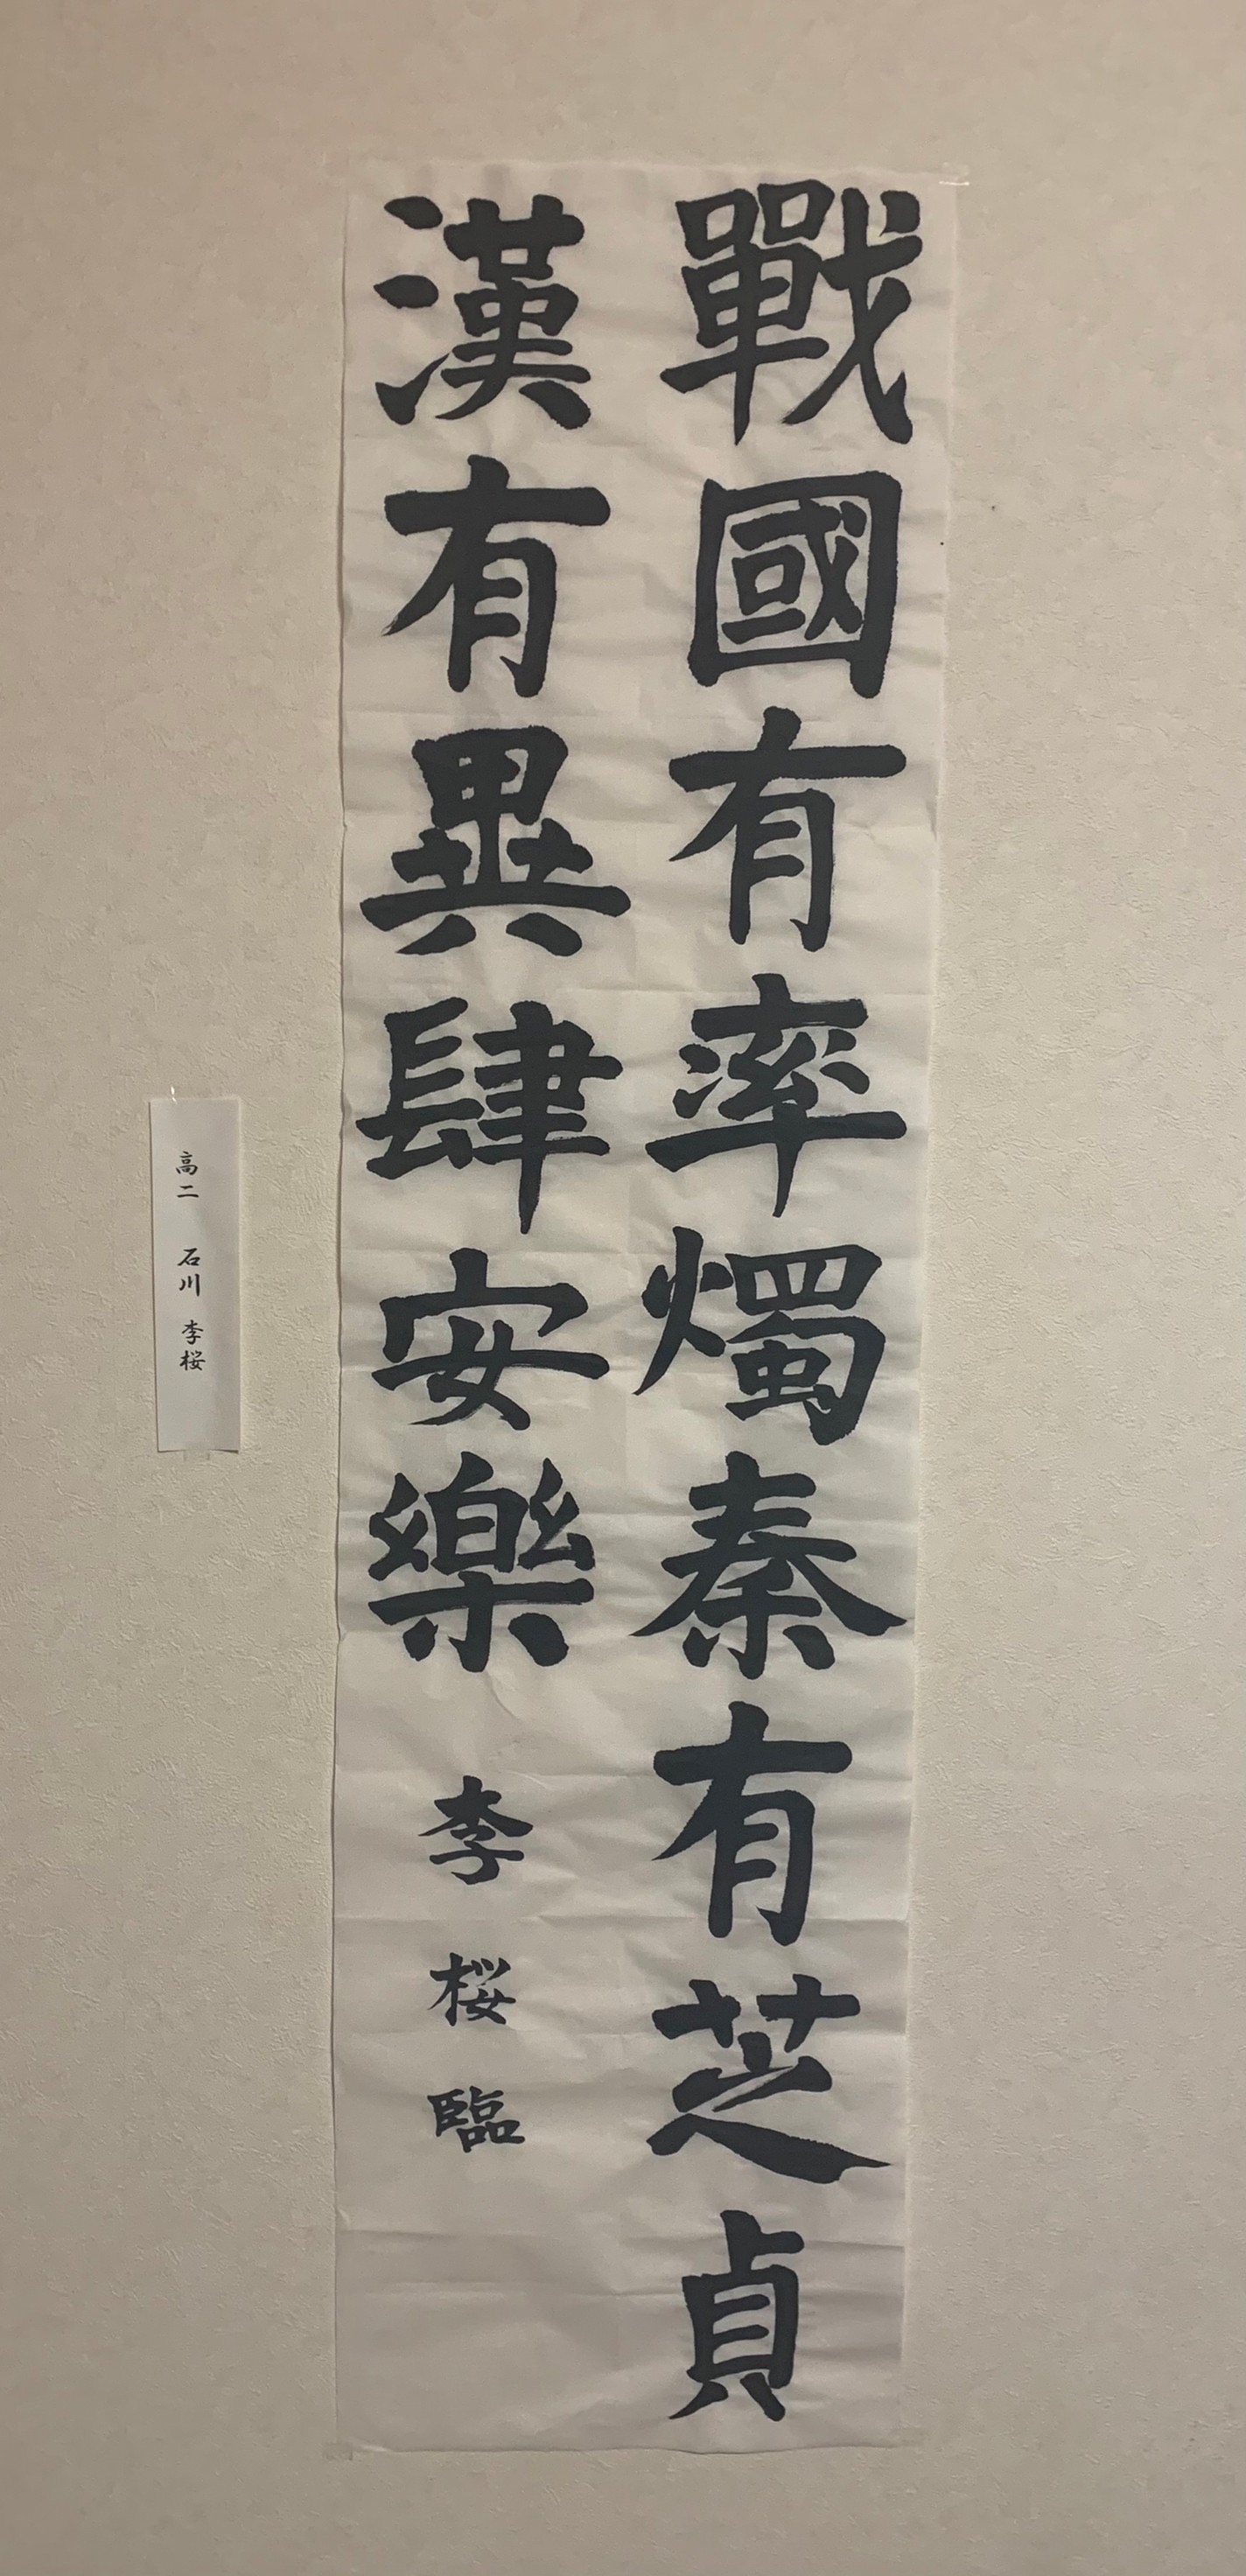 戰國有率燭秦有芝貞
漢有異肆安樂 李桜臨
高二 石川 李桜